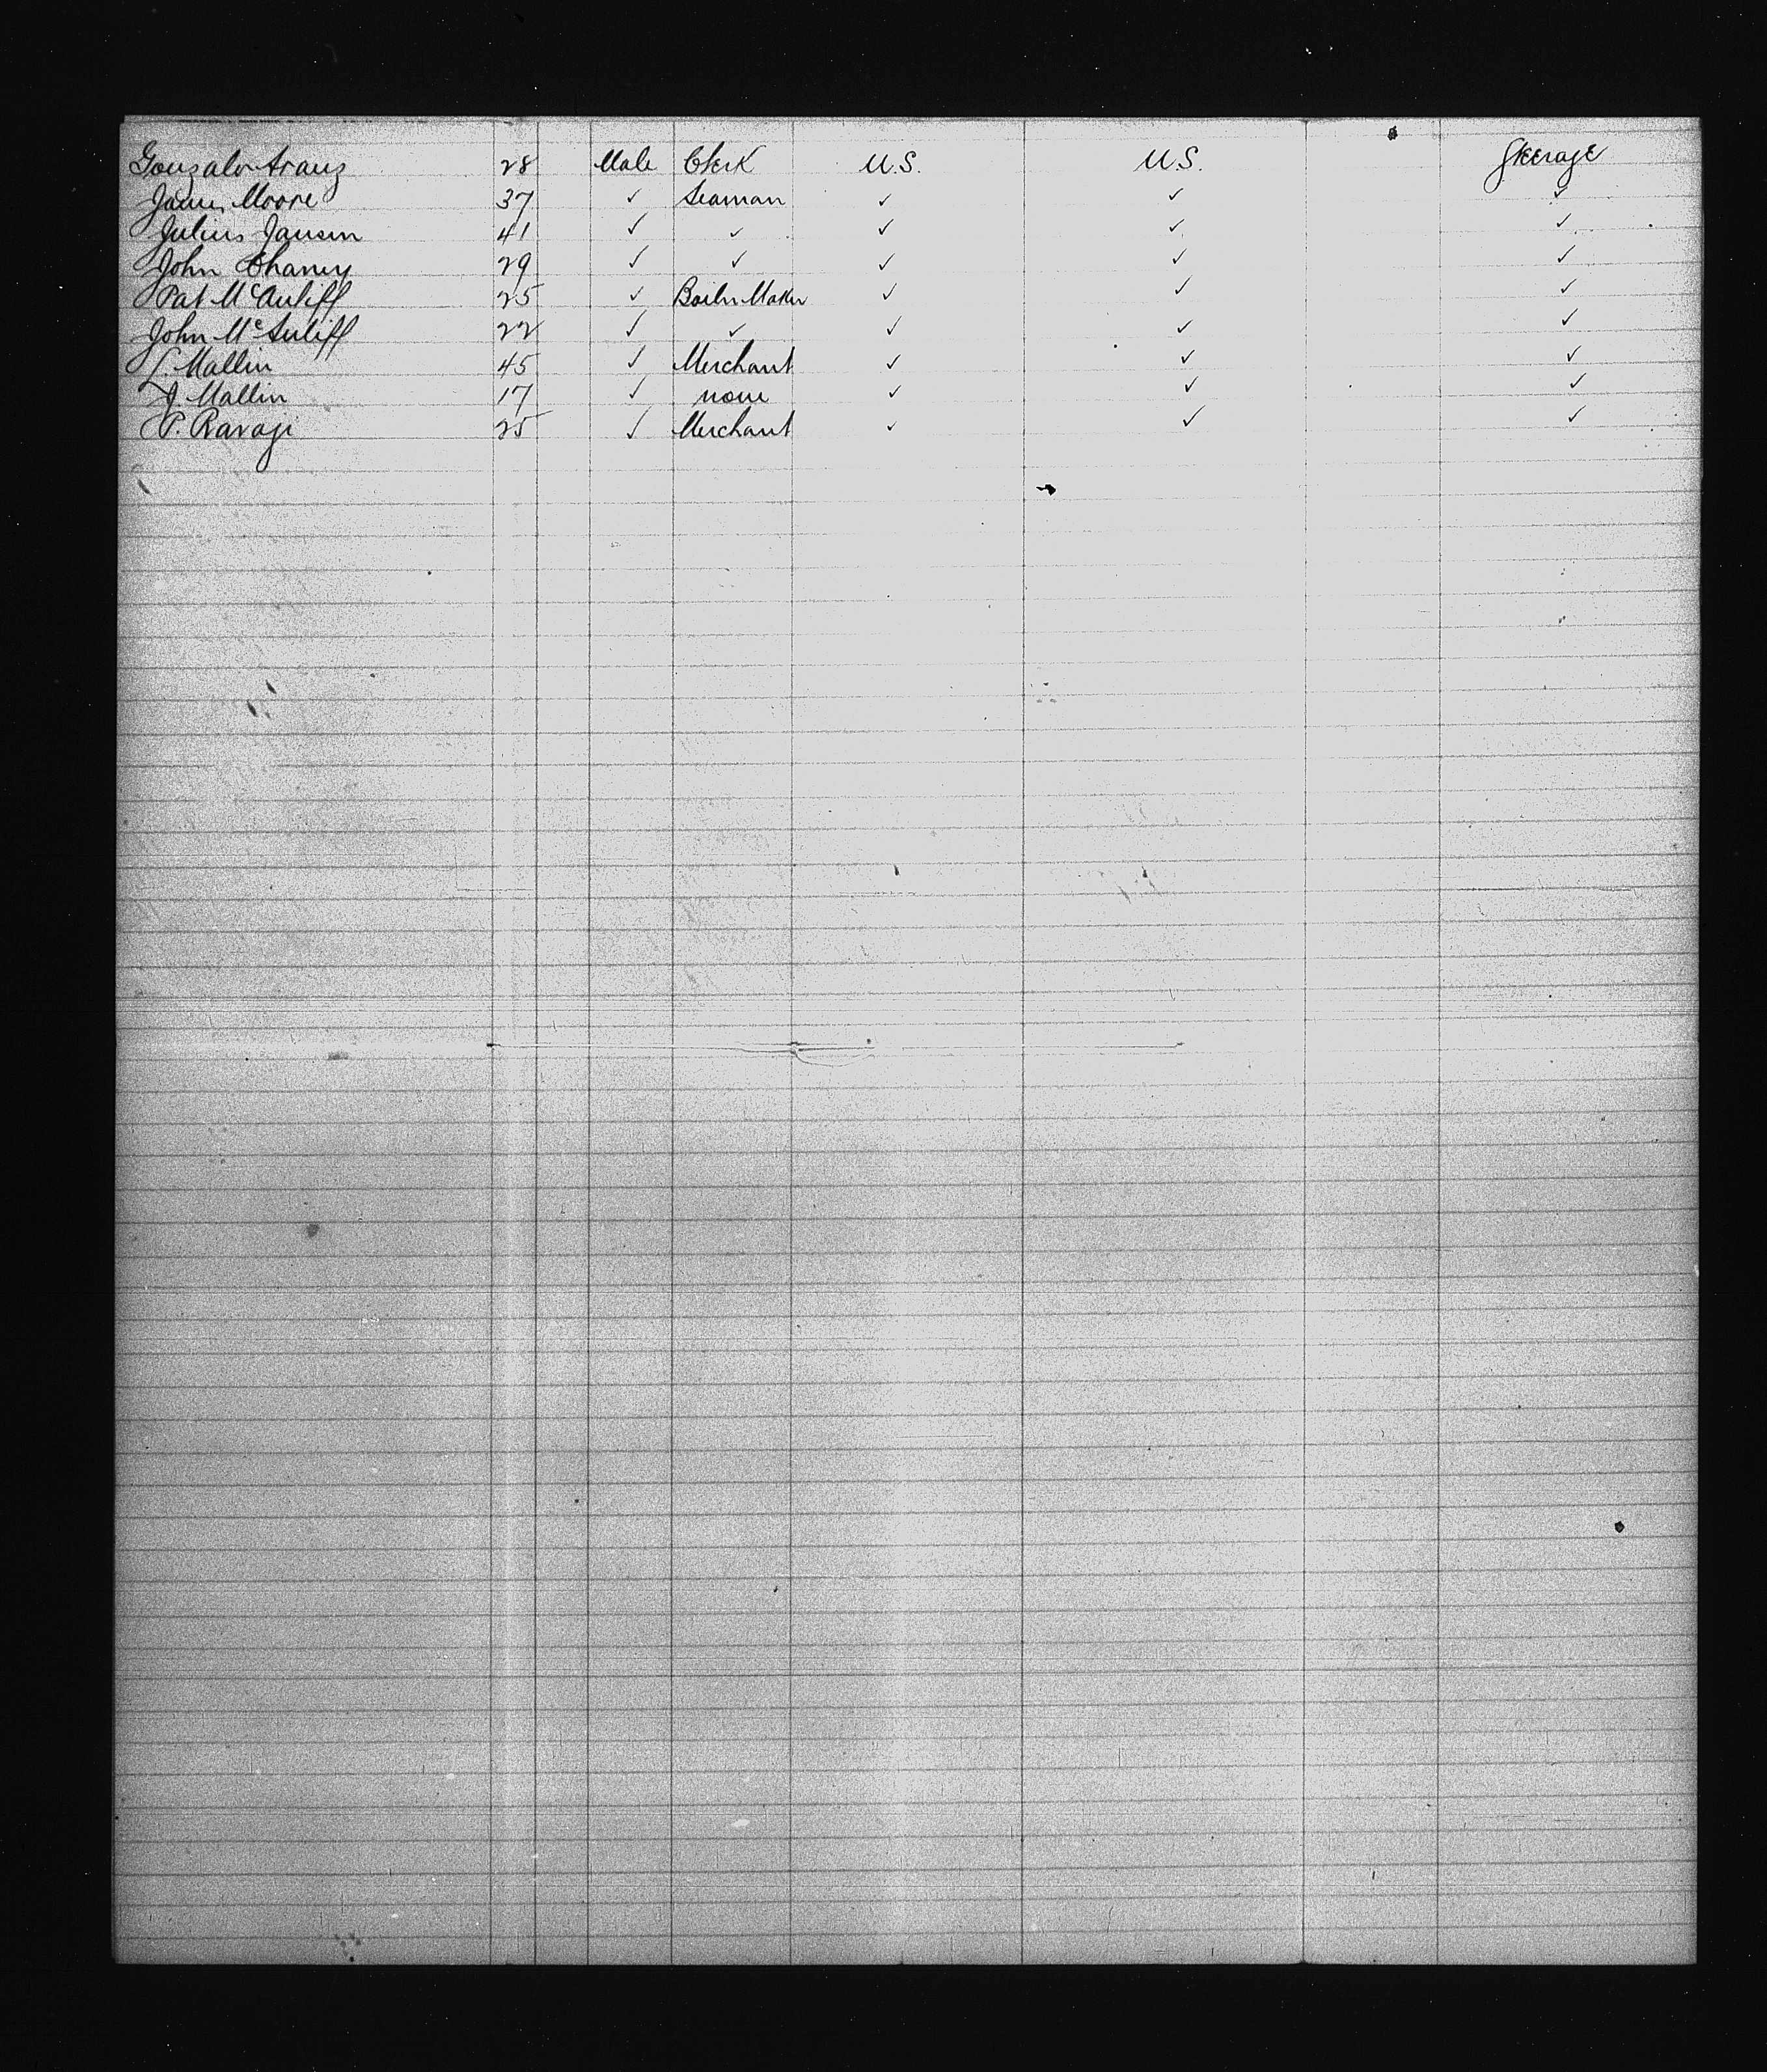 Gonzalo Arauz 28 Male Clerk U.S. U.S. Steerage
James Moore 37 ✓ Seaman ✓ ✓ ✓
Julius Jansen 41 ✓ ✓ ✓ ✓ ✓
John Chaney 29 ✓ ✓ ✓ ✓ ✓
Pat McAuliff 25 ✓ Boiler Maker ✓ ✓ ✓
John McAuliff 22 ✓ ✓ ✓ ✓ ✓
L. Mallin 45 ✓ Merchant ✓ ✓ ✓
J. Mallin 17 ✓ none ✓ ✓ ✓
P. Ravagi 25 ✓ Merchant ✓ ✓ ✓